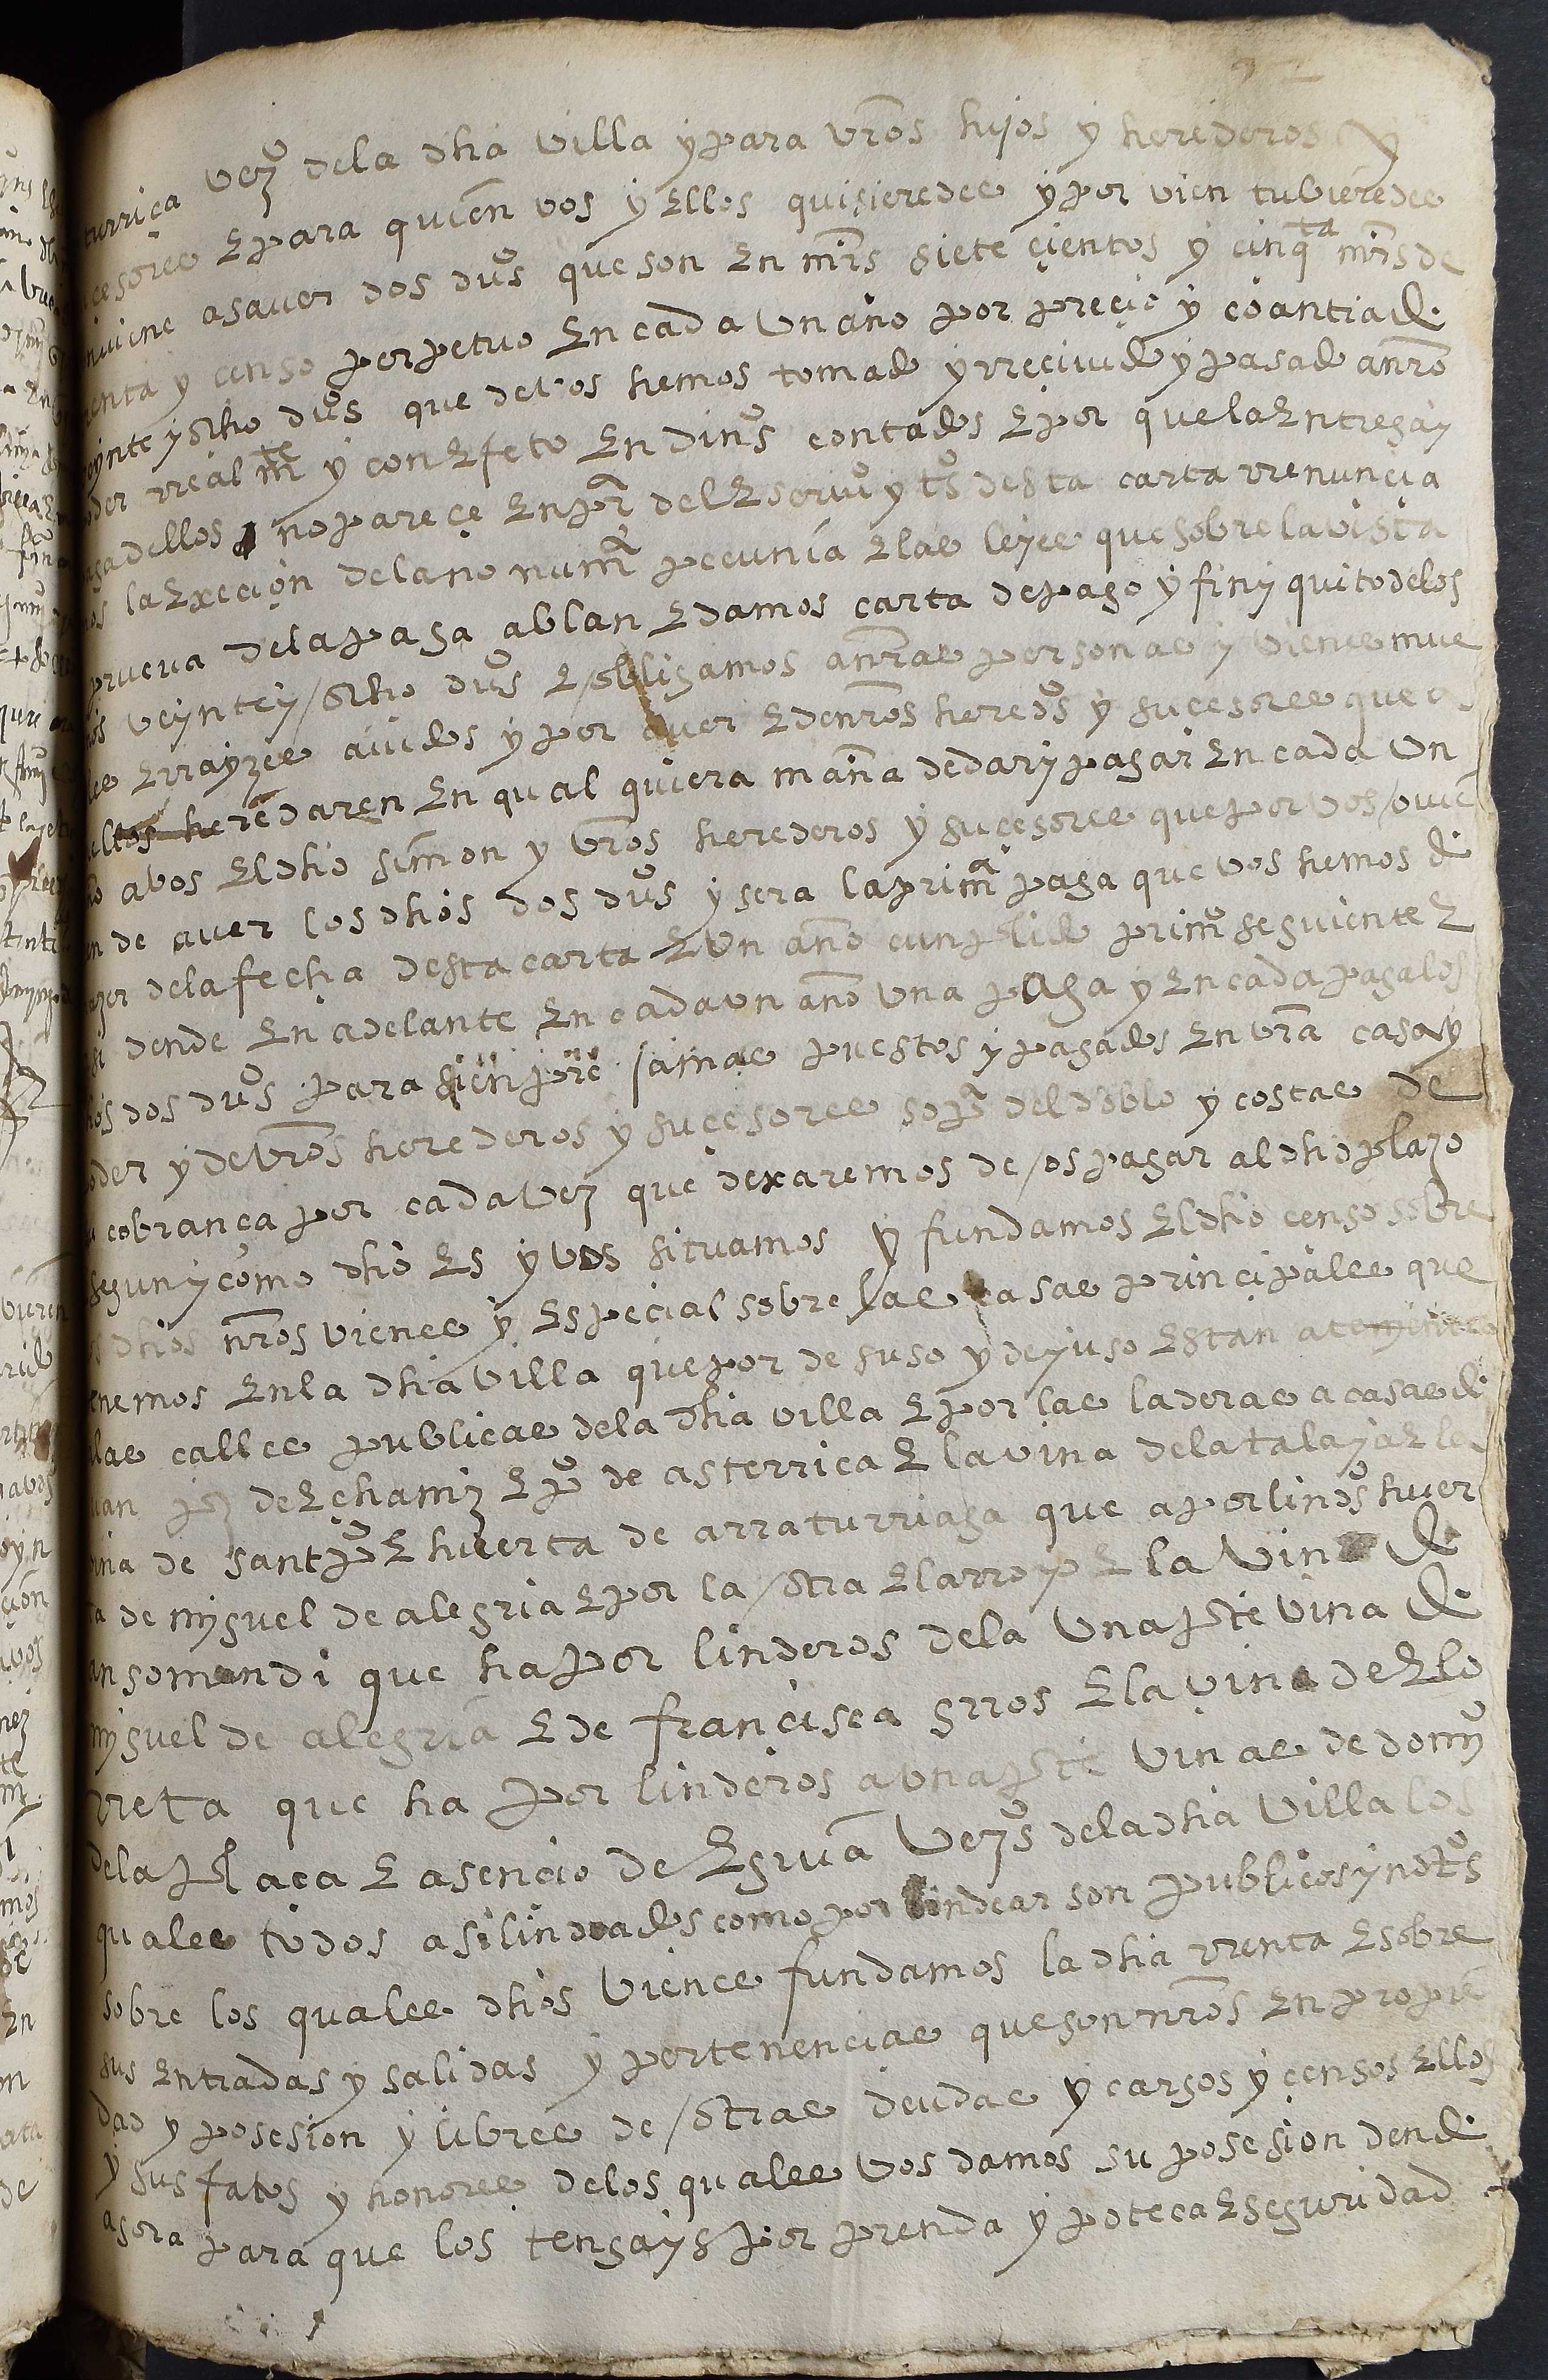 turriça vezº dela dha villa y para vros hijos y herederos y
çesores E para quien vos y Ellos quisieredes y por vien tubieredes
nviene a saver dos duºs que son En mrs siete çientos y cinqta mrs de
rrenta y censo perpetuo En cada un año por preçio y coantia de
veynte y otho duºs que de vos hemos tomado y rreçiuido y pasado a nro
poder rrealmte y con Efeto En dinºs contados E por que la Entrega y
paga dellos no pareçe En prª del Escriuº y tºs desta carta rrenunçia
mos la Exeçion dela no numª pecunia E las leyes que sobre la vista
prueva dela paga ablan E damos carta de pago y finyquito delos
dhos veynte y otho duºs E obligamos a nras personas y vienes mue
bles E rrayzes auidos y por auer E de nros heredºs y sucesores que a
ellos heredaren En qual quiera mana de dar y pagar En cada un
año a vos El dho simon y vros herederos y suçesores que por vos ovie
ren de aver los dhos dos duºs y sera la primª paga que vos hemos de
azer dela fecha desta carta E Un año cunplido primº seguiente E
asi dende En adelante En cada un año una paga y En cada paga los
dhos dos duºs para sienpre jamas puestos y pagados En vra casa y
poder y de vros herederos y suçesores so pª del doblo y costas de
su cobrança por cada vez que dexaremos de os pagar al dho plazo
segun y como dho Es y vos situamos y fundamos El dho censo sobre
los dhos nros vienes y Especial sobre las casas prinçipales que
tenemos En la dha villa que por de suso y de yuso Estan atenientes
a las calles publicas dela dha villa E por las laderas a casas de
Juan pz de Echamiz E pº de asterrica E la vina dela talaya E la
vina de sant pº E huerta de arraturriaga que a por lindºs huer
ta de myguel de alegria E por la otra El arroyo E la vina de
ansomendi que ha por linderos dela una pte vina de
myguel de alegria E de francisca grros E la vina de Elo
rreta que ha por linderos a una pte vinas de domyº
dela plaça E asencio de Eguia Vezºs dela dha villa los
quales todos asi lindeados como por lindear son publicos y notºs
sobre los quales dhos vienes fundamos la dha rrenta E sobre
sus Entradas y salidas y pertenencias que son nros En propie
dad y posesion y libres de otras deudas y cargos y çensos Ellos
y sus fatos y honores delos quales vos damos su posesion dende
agora para que los tengays por prenda y poteca E seguridad